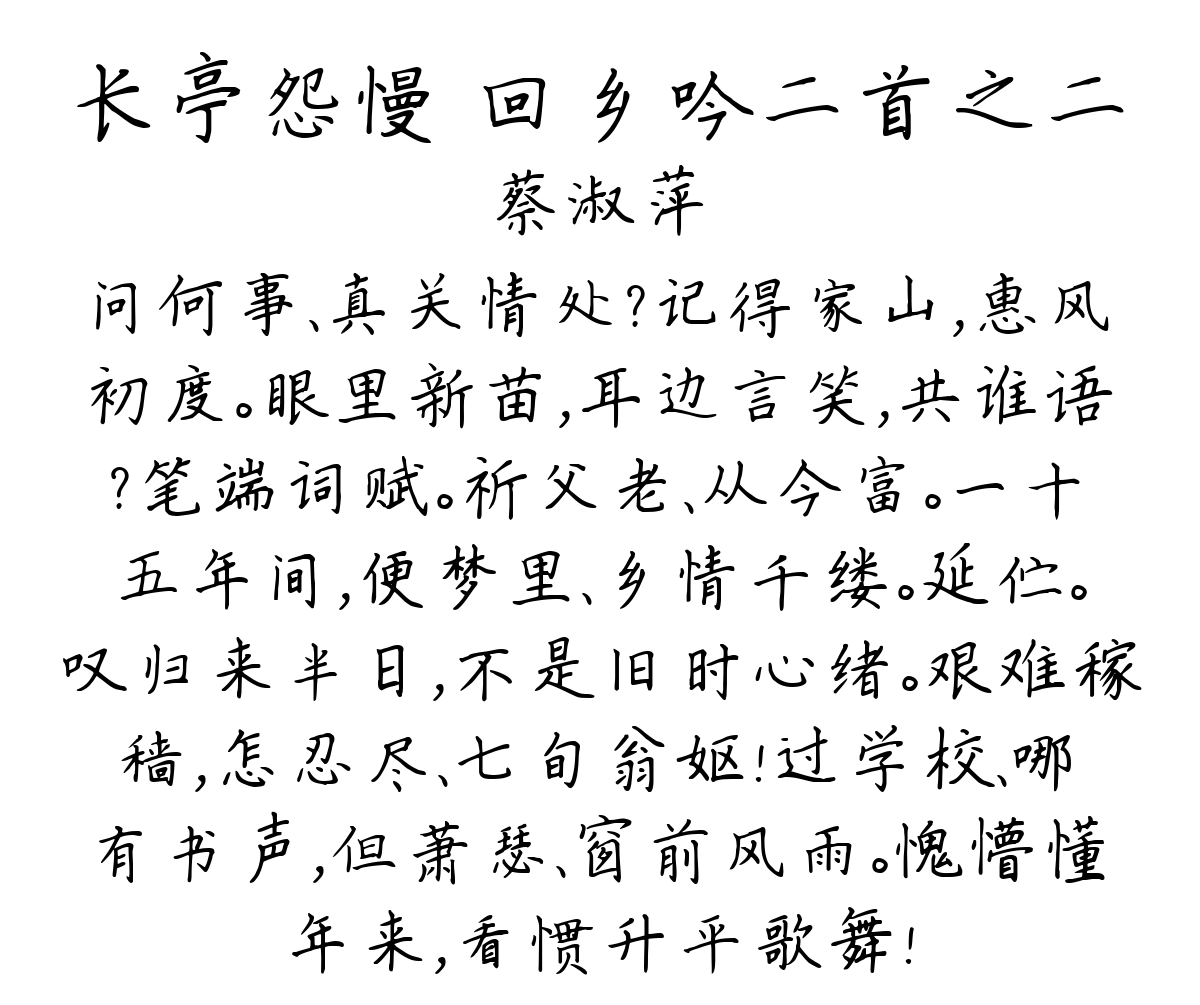 长亭怨慢 回乡吟二首之二
蔡淑萍
问何事、真关情处?记得家山,惠风
初度。眼里新苗,耳边言笑,共谁语
?笔端词赋。祈父老、从今富。一十
五年间,便梦里、乡情千缕。延伫。
叹归来半日,不是旧时心绪。艰难稼
穑,怎忍尽、七旬翁妪!过学校、哪
有书声,但萧瑟、窗前风雨。愧懵懂
年来,看惯升平歌舞!